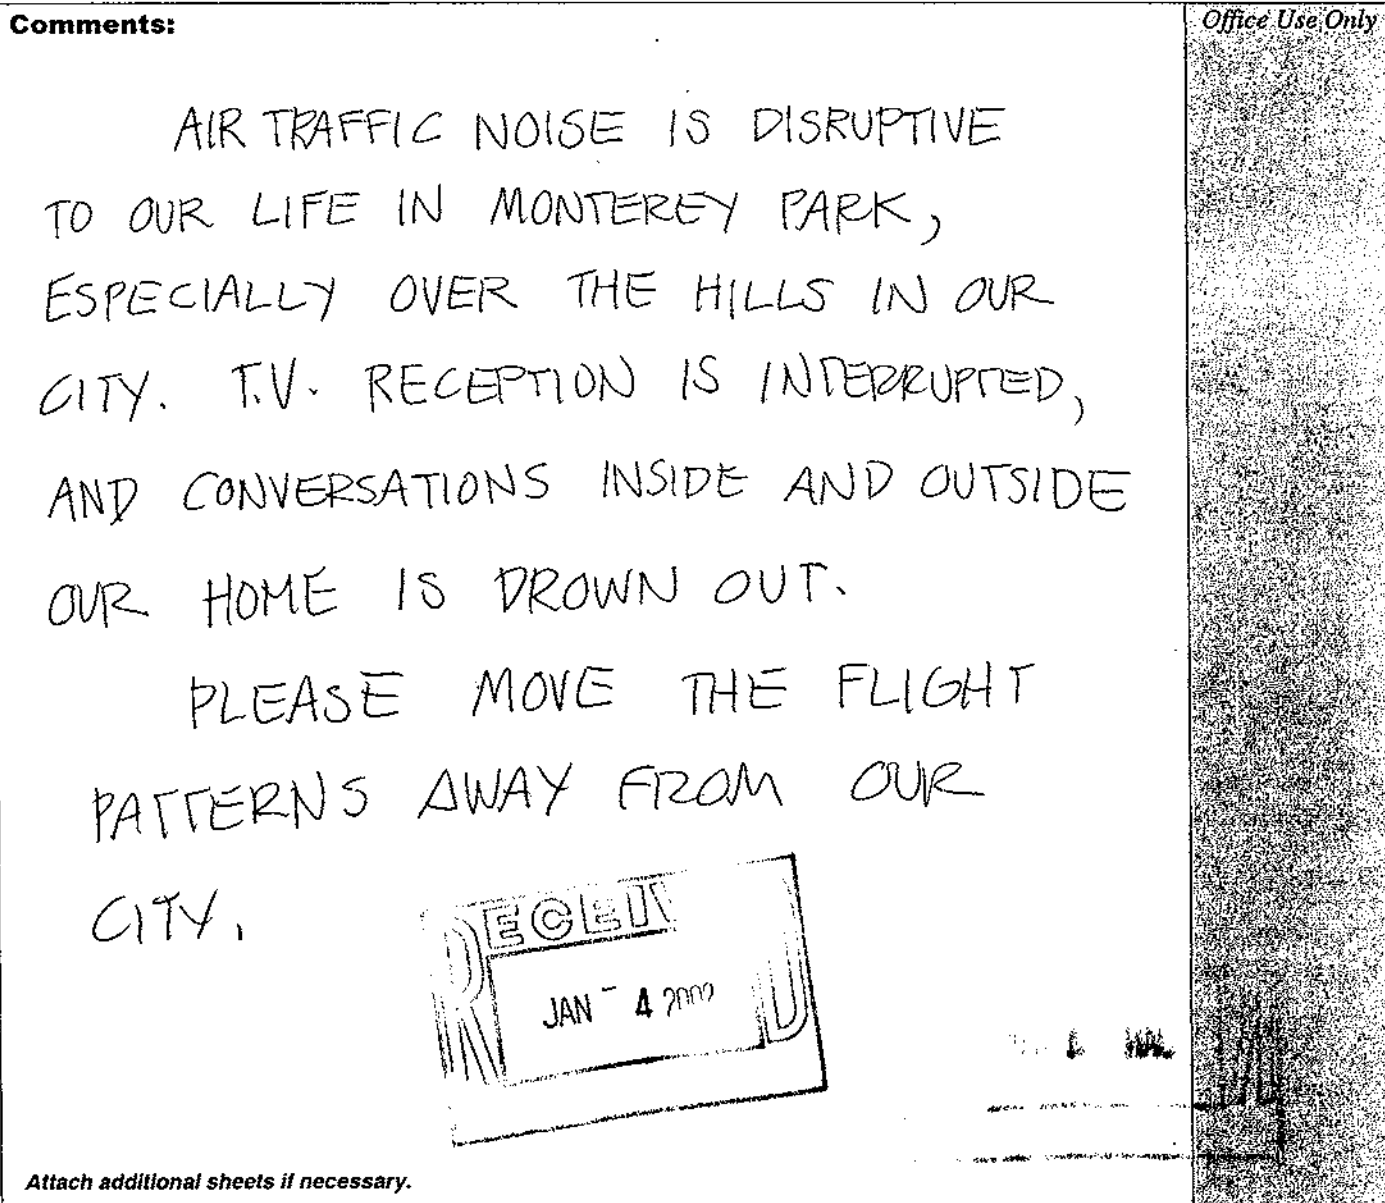 Comments:
Office Use Only
AIR TRAFFIC NOISE IS DISRUPTIVE
TO OUR LIFE IN MONTEREY PARK,
ESPECIALLY OVER THE HILLS IN OUR
CITY. T.V. RECEPTION IS INTERRUPTED,
AND CONVERSATIONS INSIDE AND OUTSIDE
OUR HOME IS DROWN OUT.
PLEASE MOVE THE FLIGHT
PATTERNS AWAY FROM OUR
CITY.
JAN - 4 2002
Attach additional sheets if necessary.